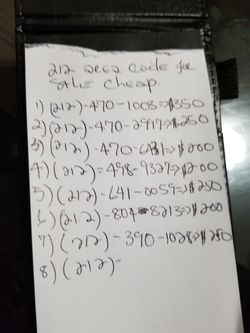 212 area code for
Sale cheap.
1) (212)-470-1008=>$350
2) (212)-470-2917=>$250
3) (212)-470-0181=>$200
4) (212)=498-9327=>$200
5) (212)-641-0059=>$250
6) (212)-804-8213=>$200
7) (212)-390-1028=>$250
8) (212)-